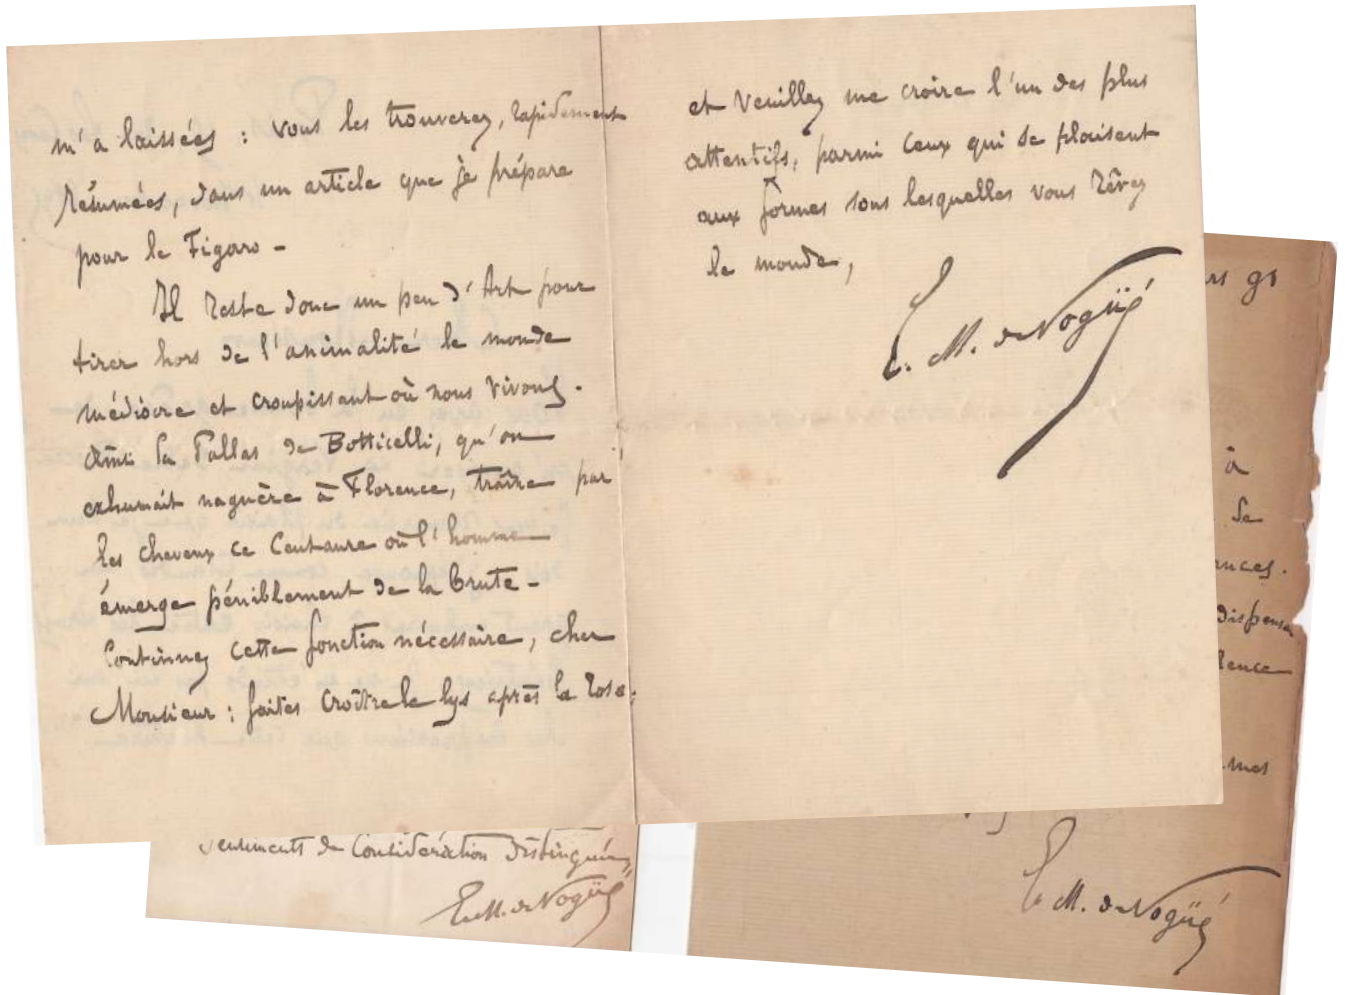 m'a laissées : vous les trouverez, rapidement
résumées, dans un article que je prépare
pour le Figaro -
Il reste donc un peu d'Art pour
tirer hors de l'animalité le monde
médiocre et croupissant où nous vivons.
Ainsi la Pallas de Botticelli, qu'on
exhumait naguère à Florence, traîne par
les cheveux ce Centaure où l'homme
émerge péniblement de la brute -
Continuez cette fonction nécessaire, cher
Monsieur : faites croître le lys après la rose ;
et veuillez me croire l'un des plus
attentifs, parmi ceux qui se plaisent
aux formes sous lesquelles vous rêvez
le monde,
E. M. de Vogüé
à
se
dispenser
sentiments de considération distinguée,
E. M. de Vogüé
E. M. de Vogüé